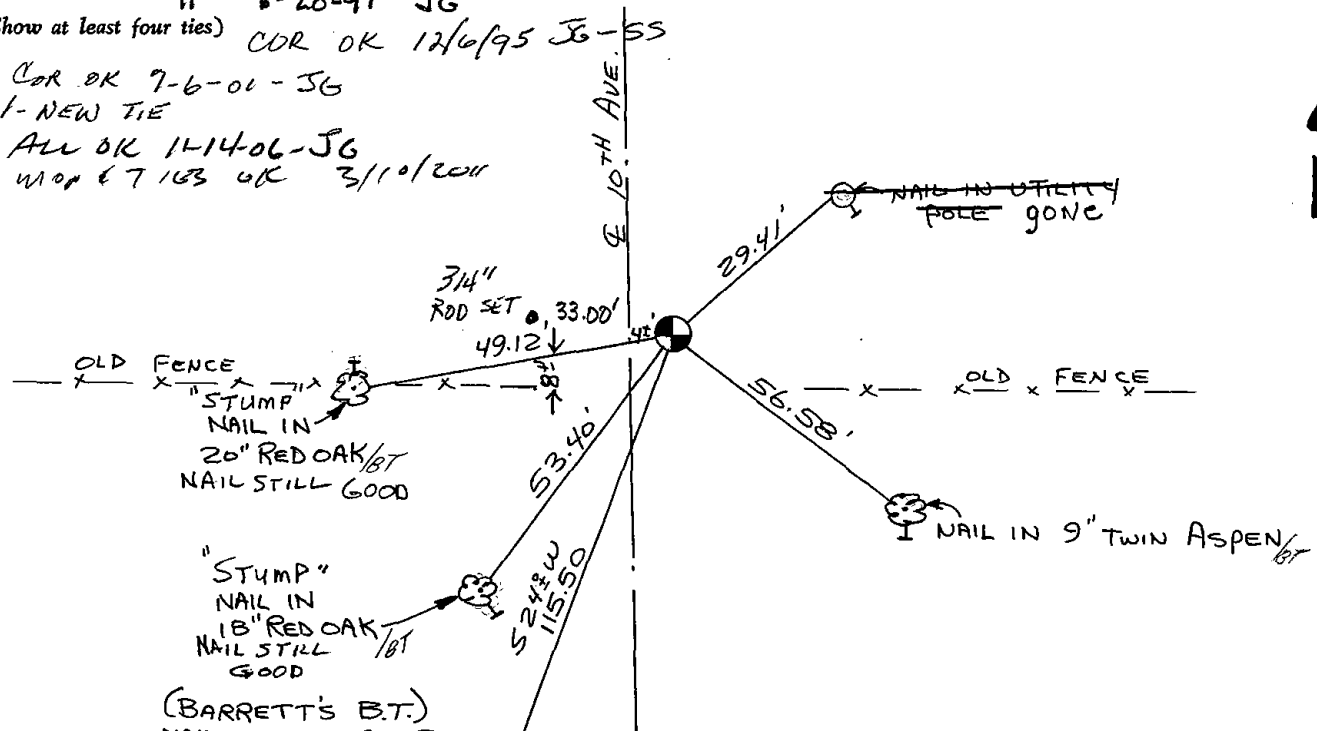 JG
Show at least four ties)
COR OK 12/6/95 JG-SS
COR OK 9-6-01 - JG
1- NEW TIE
ALL OK 11-14-06-JG
OK 3/10/2011
℄ 10TH AVE.
NAIL IN UTILITY
POLE GONE
29.41'
3/4"
ROD SET 33.00'
49.12'
4±'
8±'
OLD FENCE
OLD FENCE
"STUMP"
NAIL IN
20" RED OAK/BT
NAIL STILL GOOD
53.40'
56.58'
NAIL IN 9" TWIN ASPEN/BT
S24±W
115.50
"STUMP"
NAIL IN
18" RED OAK/BT
NAIL STILL
GOOD
(BARRETT'S B.T.)